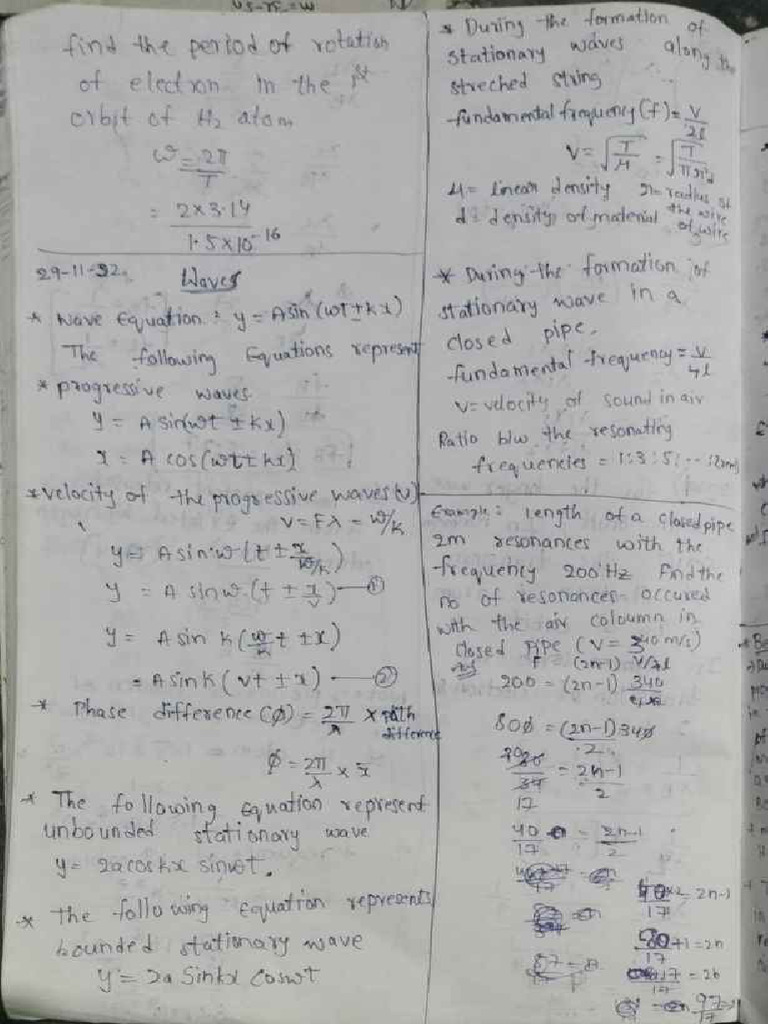 find the period of rotation
of electron in the 1st
orbit of H2 atom
ω = 2π/T
= 2×3.14 / 1.5×10^-16
29-11-22. Waves
* Wave Equation : y = A sin (ωt ± kx)
The following Equations represent
* progressive waves.
y = A sin(ωt ± kx)
x = A cos (ωt ± kx)
* velocity of the progressive waves (v)
v = Fλ = ω/k
y = A sin ω (t ± x/(ω/k))
y = A sin ω (t ± x/v) — ①
y = A sin k (ω/k t ± x)
= A sin k (vt ± x) — ②
* Phase difference (φ) = 2π/λ × path
difference
φ = 2π/λ × x
* The following Equation represent
unbounded stationary wave
y = 2a cos kx sin ωt.
* the following Equation represents
bounded stationary wave
y = 2a Sinkx Cosωt
* During the formation of
stationary waves along the
streched string
fundamental frequency (f) = v/2l
V = √T/μ = √T/πr²d
μ = linear density r = radius of
the wire
d = density of material
of wire
* During the formation of
stationary wave in a
closed pipe.
fundamental frequency = v/4l
V = velocity of sound in air
Ratio b/w the resonating
frequencies = 1:3:5: --
Example: length of a closed pipe
2m resonances with the
frequency 200 Hz find the
no of resonances occured
with the air coloumn in
closed pipe (V = 340 m/s)
F (2n-1) V/4l
200 = (2n-1) 340
800 = (2n-1) 340
2
= 2n-1
17 2
40/17 = 2n-1/2
×2 = 2n-1
17
80/17 +1 = 2n
17 = 2n
97/17